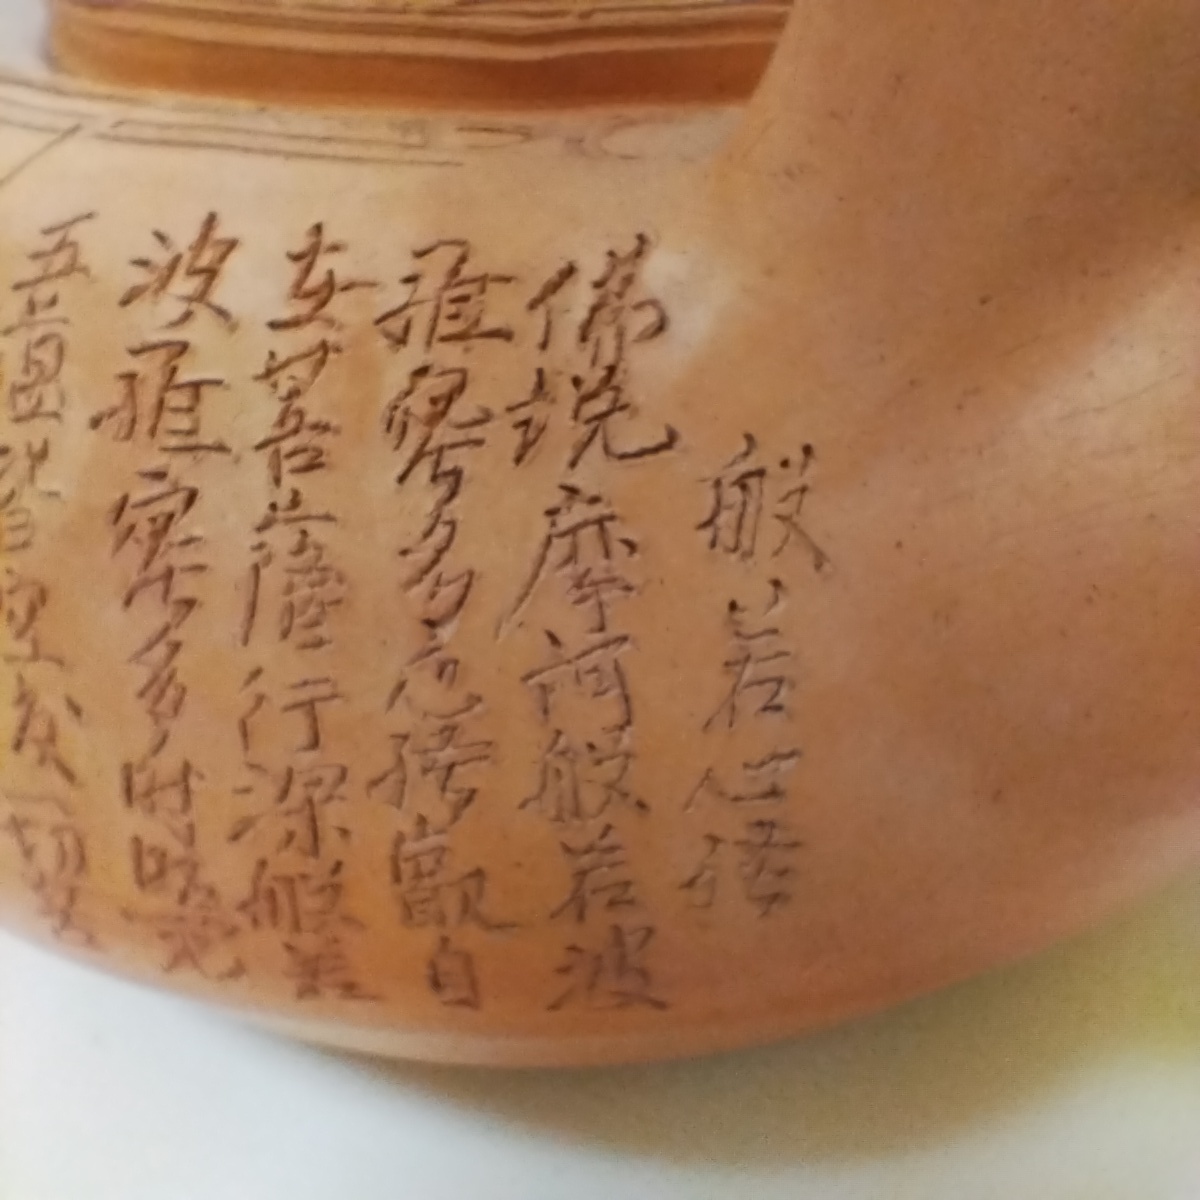 般若心經
佛說摩訶般若波
羅蜜多心經觀自
在菩薩行深般若
波羅蜜多時照見
五蘊皆空度一切苦